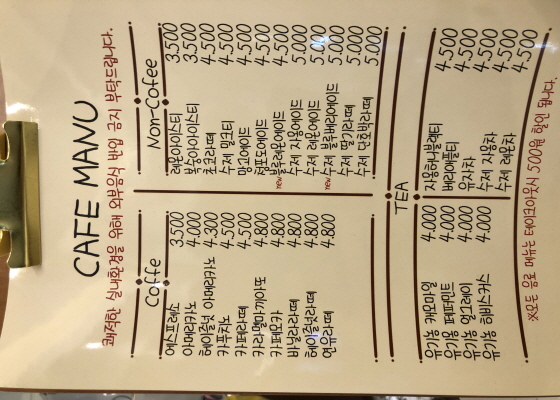 CAFE MANU
쾌적한 실내환경을 위해 외부음식 반입 금지 부탁드립니다.
Coffe
에스프레소 3.500
아메리카노 4.000
헤이즐넛 아메리카노 4.300
카푸치노 4.500
카페라떼 4.500
카라멜마끼아또 4.800
카페모카 4.800
바닐라라떼 4.800
헤이즐넛라떼 4.800
연유라떼 4.800
Non-Cofee
레몬아이스티 3.500
복숭아아이스티 3.500
초코라떼 4.500
수제 밀크티 4.500
망고에이드 4.500
청포도에이드 4.500
new 블루레몬에이드 4.500
수제 자몽에이드 5.000
수제 레몬에이드 5.000
new 수제 블루베리에이드 5.000
수제 딸기라떼 5.000
수제 단호박라떼 5.000
TEA
유기농 캐모마일 4.000
유기농 페퍼민트 4.000
유기농 얼그레이 4.000
유기농 히비스커스 4.000
자몽허니블랙티 4.500
베리애플티 4.500
유자차 4.500
수제 자몽차 4.500
수제 레몬차 4.500
※모든 음료 메뉴는 테이크아웃시 500원 할인 됩니다.